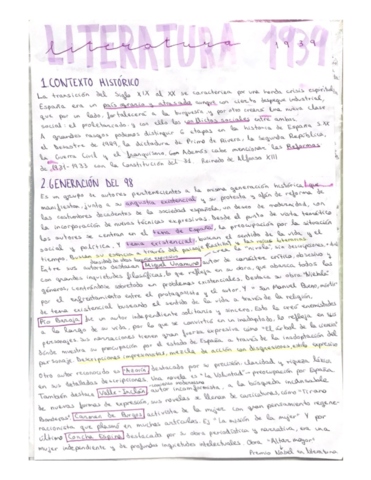 LITERATURA 1939
literatura 1939
1. CONTEXTO HISTÓRICO
La transición del Siglo XIX al XX se caracteriza por una honda crisis espiritual
España era un país agrario y atrasado aunque un cierto despegue industrial,
que por un lado fortalecerá a la burguesía y por otro creará una nueva clase
social: el proletariado, y con ello los conflictos sociales entre ambos
A grandes rasgos podemos distinguir 4 etapas en la historia de España S.XX
el desastre de 1989, la dictadura de Primo de Rivera, la segunda República,
la Guerra Civil y el franquismo. Además cabe mencionar las Reformas
de 1931-1933 con la Constitución del 31. Reinado de Alfonso XIII
2 GENERACIÓN DEL 98
Es un grupo de autores pertenecientes a la misma generación histórica
manifiestan, junto a su angustia existencial y su protesta y afán de reforma de
las costumbres decadentes de la sociedad española, un deseo de modernidad, con
la incorporación de nuevas técnicas expresivas. Desde el punto de vista temático
los autores se centran en el tema de España, la preocupación por la situación
social y política, y tema existencial, buscan el sentido de la vida y el
tiempo. Buscan su esencia a través del paisaje
Entre sus autores destacan Miguel Unamuno autor de carácter crítico, obsesivo y
con grandes inquietudes filosóficas, lo que refleja en su obra, que abarca todos los
géneros, centrándose sobretodo en problemas existenciales. Destaca su obra "Niebla"
por el enfrentamiento entre el protagonista y el autor. Y "San Manuel Bueno, mártir"
de tema existencial buscando el sentido de la vida a través de la religión.
Pío Baroja, fue un autor independiente solitario y sincero. Este lo creó
a lo largo de su vida, por lo que se convirtió en un inadaptado, lo refleja en sus
personajes. Sus narraciones tienen gran fuerza expresiva como "El árbol de la ciencia"
dónde muestra su preocupación por el estado de España a través de la inadaptación del
personaje. Descripciones impresionistas, mezcla de acción con
Otro autor reconocido es Azorín destacado por su precisión, claridad y riqueza léxica
en sus detalladas descripciones. Una novela es "La Voluntad" preocupación por España
También destaca Valle-Inclán autor inconformista, a la búsqueda incansable
de nuevas formas de expresión, sus novelas se llenan de caricaturas como "Tirano
Banderas". Carmen de Burgos activista de la mujer con gran pensamiento regene-
racionista que plasmó en muchos artículos. Ej "La misión de la mujer". Y por
último Concha Espina destacada por su obra periodística y narrativa, era una
mujer independiente y de profundas inquietudes intelectuales. Obra "Altar mayor"
Premio Nacional de literatura